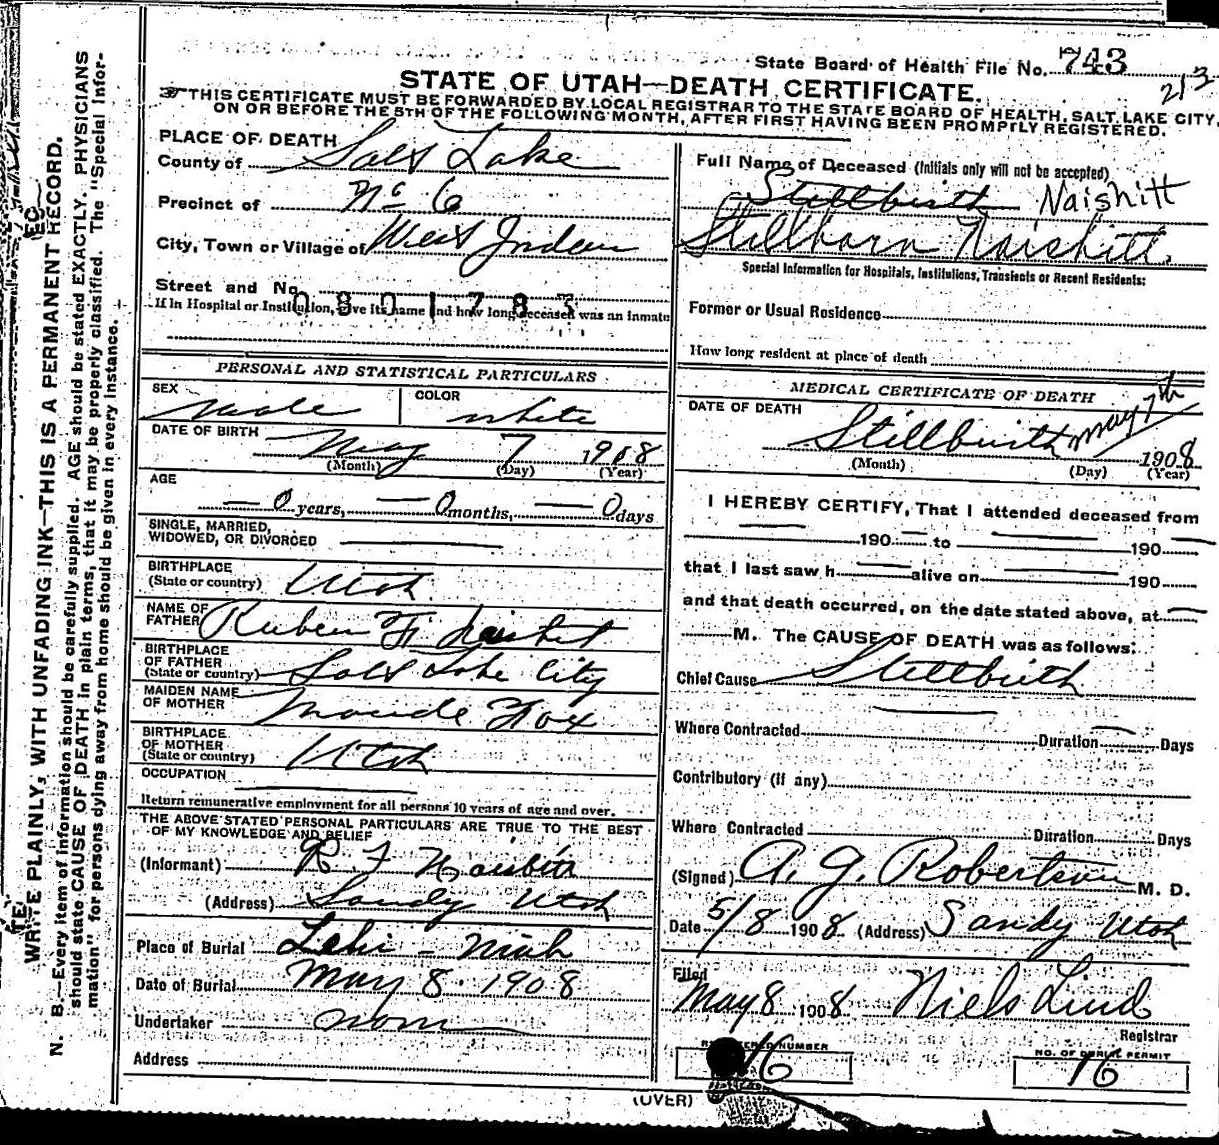 State Board of Health File No. 743
213
STATE OF UTAH—DEATH CERTIFICATE.
THIS CERTIFICATE MUST BE FORWARDED BY LOCAL REGISTRAR TO THE STATE BOARD OF HEALTH, SALT LAKE CITY,
ON OR BEFORE THE 5TH OF THE FOLLOWING MONTH, AFTER FIRST HAVING BEEN PROMPTLY REGISTERED.
WRITE PLAINLY, WITH UNFADING INK—THIS IS A PERMANENT RECORD.
N. B.—Every item of information should be carefully supplied. AGE should be stated EXACTLY. PHYSICIANS
should state CAUSE OF DEATH in plain terms, that it may be properly classified. The "Special Infor-
mation" for persons dying away from home should be given in every instance.
PLACE OF DEATH
County of Salt Lake
Precinct of No 6
City, Town or Village of West Jordan
Street and No.
0801783
If in Hospital or Institution, give its name and how long deceased was an inmate
PERSONAL AND STATISTICAL PARTICULARS
SEX male COLOR white
DATE OF BIRTH May 7 1908
(Month) (Day) (Year)
AGE
— 0 years, — 0 months, — 0 days
SINGLE, MARRIED,
WIDOWED, OR DIVORCED —
BIRTHPLACE
(State or country) Utah
NAME OF
FATHER Ruben F. Naisbit
BIRTHPLACE
OF FATHER
(State or country) Salt Lake City
MAIDEN NAME
OF MOTHER Maude Fox
BIRTHPLACE
OF MOTHER
(State or country) Utah
OCCUPATION —
Return remunerative employment for all persons 10 years of age and over.
THE ABOVE STATED PERSONAL PARTICULARS ARE TRUE TO THE BEST
OF MY KNOWLEDGE AND BELIEF
(Informant) R F Naisbitt
(Address) Sandy Utah
Place of Burial Lehi - Utah
Date of Burial May 8. 1908
Undertaker none
Address
Full Name of Deceased (Initials only will not be accepted)
Stillbirth Naisbitt
Stillborn Naisbitt
Special Information for Hospitals, Institutions, Transients or Recent Residents:
Former or Usual Residence
How long resident at place of death
MEDICAL CERTIFICATE OF DEATH
DATE OF DEATH
Stillbirth May 7th 1908
(Month) (Day) (Year)
I HEREBY CERTIFY, That I attended deceased from
— 190 — to — 190 —
that I last saw h — alive on — 190
and that death occurred, on the date stated above, at —
M. The CAUSE OF DEATH was as follows:
Chief Cause Stillbirth
Where Contracted Duration — Days
Contributory (if any)
Where Contracted Duration Days
(Signed) A. J. Robertson M. D.
Date 5/8 1908 (Address) Sandy Utah
Filed
May 8 1908 Niels Lind
Registrar
REGISTERED NUMBER
16
NO. OF BURIAL PERMIT
16
(OVER)